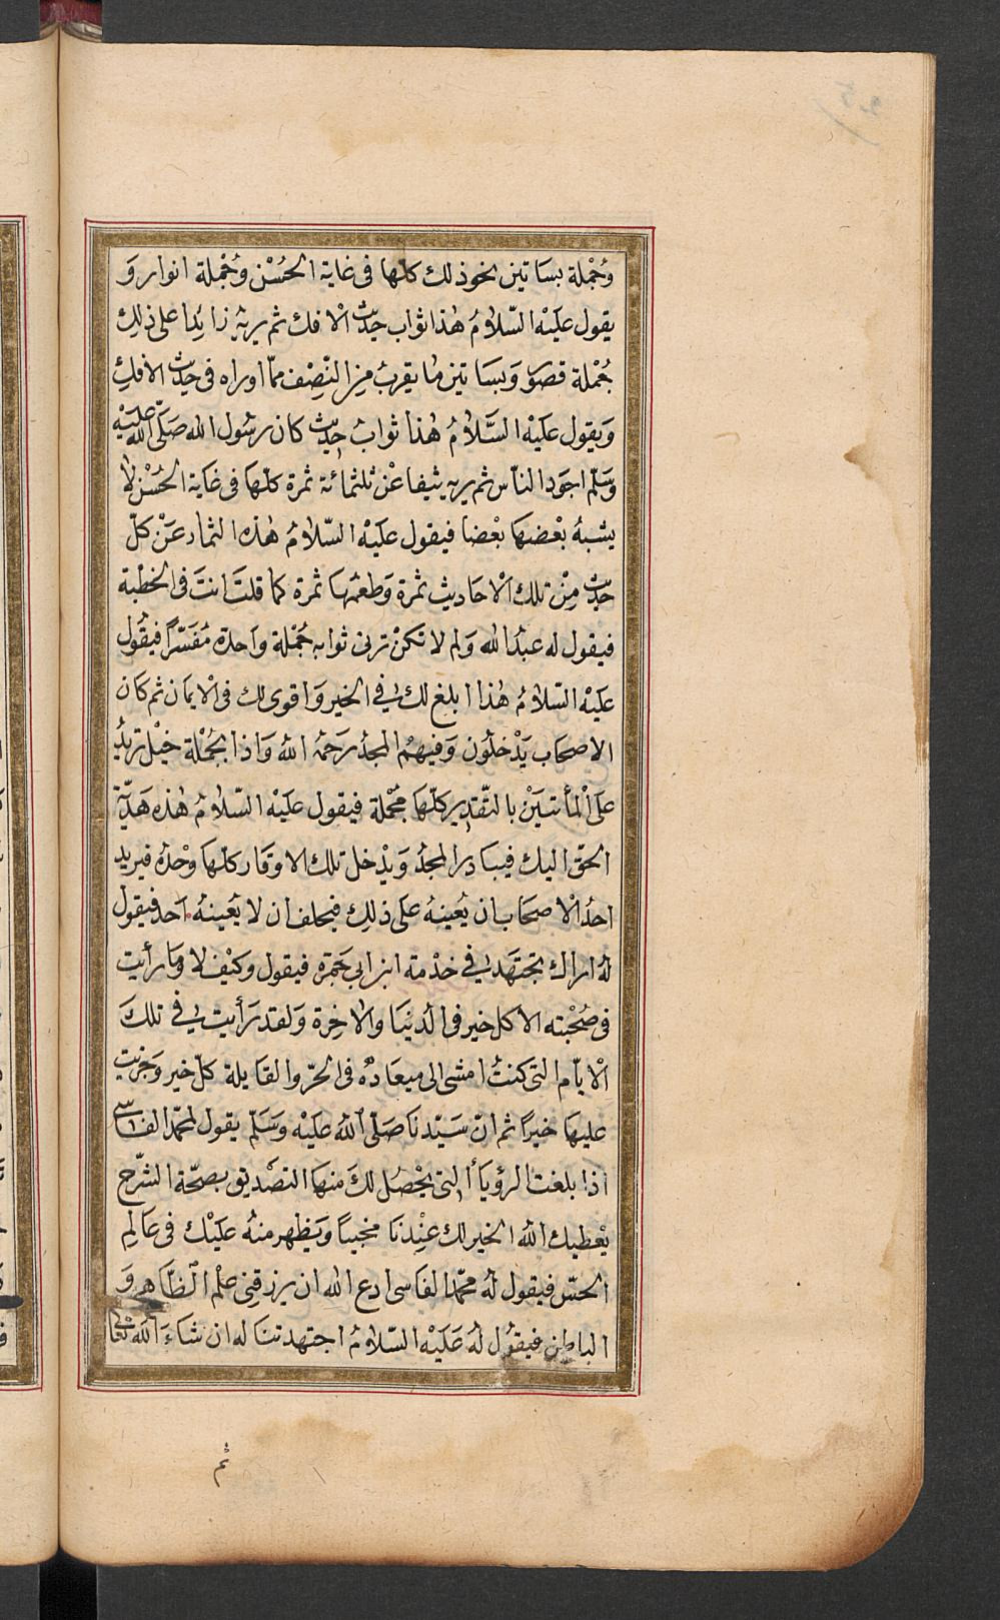 وَجُمْلة بسَاتين نحو ذلك كلّها فى غاية الحُسْن وَجُمْلة انوار وَ
يقول عليْه السّلامُ هٰذا ثواب حديث الافك ثم يريه زايدًا على ذلك
جُمْلة قصور وَبسَاتين مٰا يقربُ مِن النّصْف ممّا اوراه فى حديث الافك
وَيقول عليْه السَّلامُ هٰذا ثوابُ حديث كان رسُول الله صَلّى الله عليْه
وَسَلّم اجوَد النّاس ثم يريه ينيفا عنْ ثلثمائة ثمرة كلّها فى غاية الحُسْن لا
يشبهُ بعْضها بعْضا فيقول عليْه السّلامُ هٰذه الثمار عَنْ كلّ
حديث مِنْ تلك الاحَاديث ثمرة وَطعْمهَا ثمرة كما قلتَ انتَ فى الخطبة
فيقول له عبْد الله وَلم لا تكنْ ترنى ثوابه جُمْلة واحدة مُفَسّراً فيقُول
عليْه السّلامُ هٰذا ابلغ لك فى الخير وَاقوى لك فى الايمَان ثم كان
الاصحَاب يَدْخلُون وَفيهمُ المجدُ رَحمَهُ اللهُ وَاذا بجُمْلة خيْل تزيدُ
على الْمأتيَيْن بالتّقدير كلّها محمّلة فيقول عليْه السّلامُ هٰذه هَديّة
الحقّ اليك فيبَادر المجدُ وَيدْخل تلك الاوقَار كلّهَا وحْدَهُ فيريد
احدُ الاصحَاب ان يُعينهُ على ذلك فيحلف ان لا يُعينهُ احد فيقول
لهُ اراك تجتهَد فى خدْمة ابن ابى جَمَرة فيقول وكيْف لا وَمَا رأيت
فى صُحْبته الا كل خير فى الدنيَا والاخِرة وَلقد رَأيت فى تلكَ
الايّام التى كنتُ امشى الى ميعَادهُ فى الحرّ والقايلة كلّ خير وَجزيت
عليهَا خيراً ثم انّ سَيّدنا صَلّى اللهُ عليْه وَسَلّم يقول لمحمّد الفاسى
اذا بلغت الرؤيَا التى يحْصُل لكَ منهَا التصْديق بصحّة الشّرح
يعْطيك اللهُ الخير لك عِنْدنَا مخبيًا وَيظهر منهُ عليْك فى عَالم
الحسّ فيقول لهُ محمّد الفاسى ادع الله ان يرزقنى علْم الظّاهِر وَ
الباطن فيقُول لهُ عَليْه السّلامُ اجتهدتنا له ان شاءَ اللهُ تعَالى
ثم